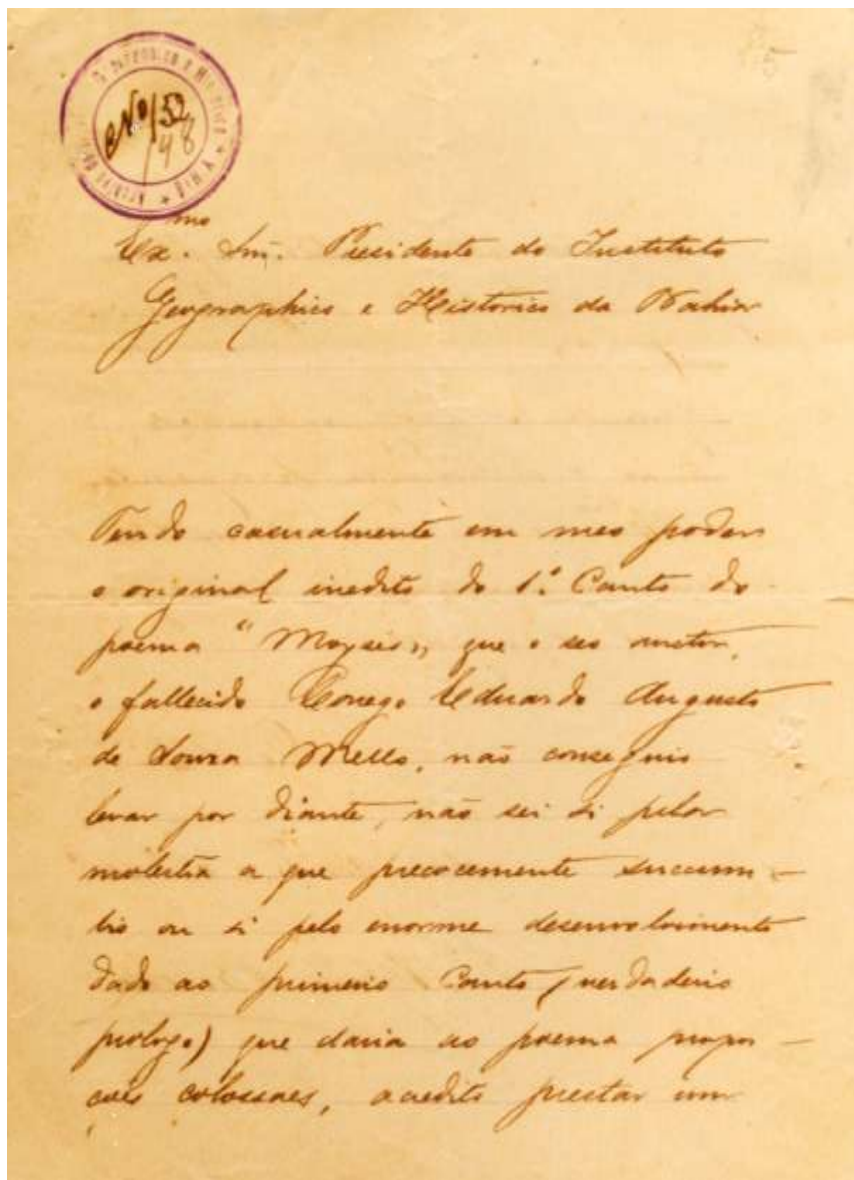 Nº 152
148
Ex.mo Snr. Presidente do Instituto
Geographico e Historico da Bahia
Tendo casualmente em meo poder
o original inedito do 1º Canto do
poema "Moyses„ que o seo auctor,
o fallecido Conego Eduardo Augusto
de Souza Mello, não conseguio
levar por diante, não sei si pela
molestia a que precocemente succum-
bio ou si pelo enorme desenvolvimento
dado ao primeiro Canto (verdadeiro
prologo) que daria ao poema propor-
ções colossaes, acredito prestar um